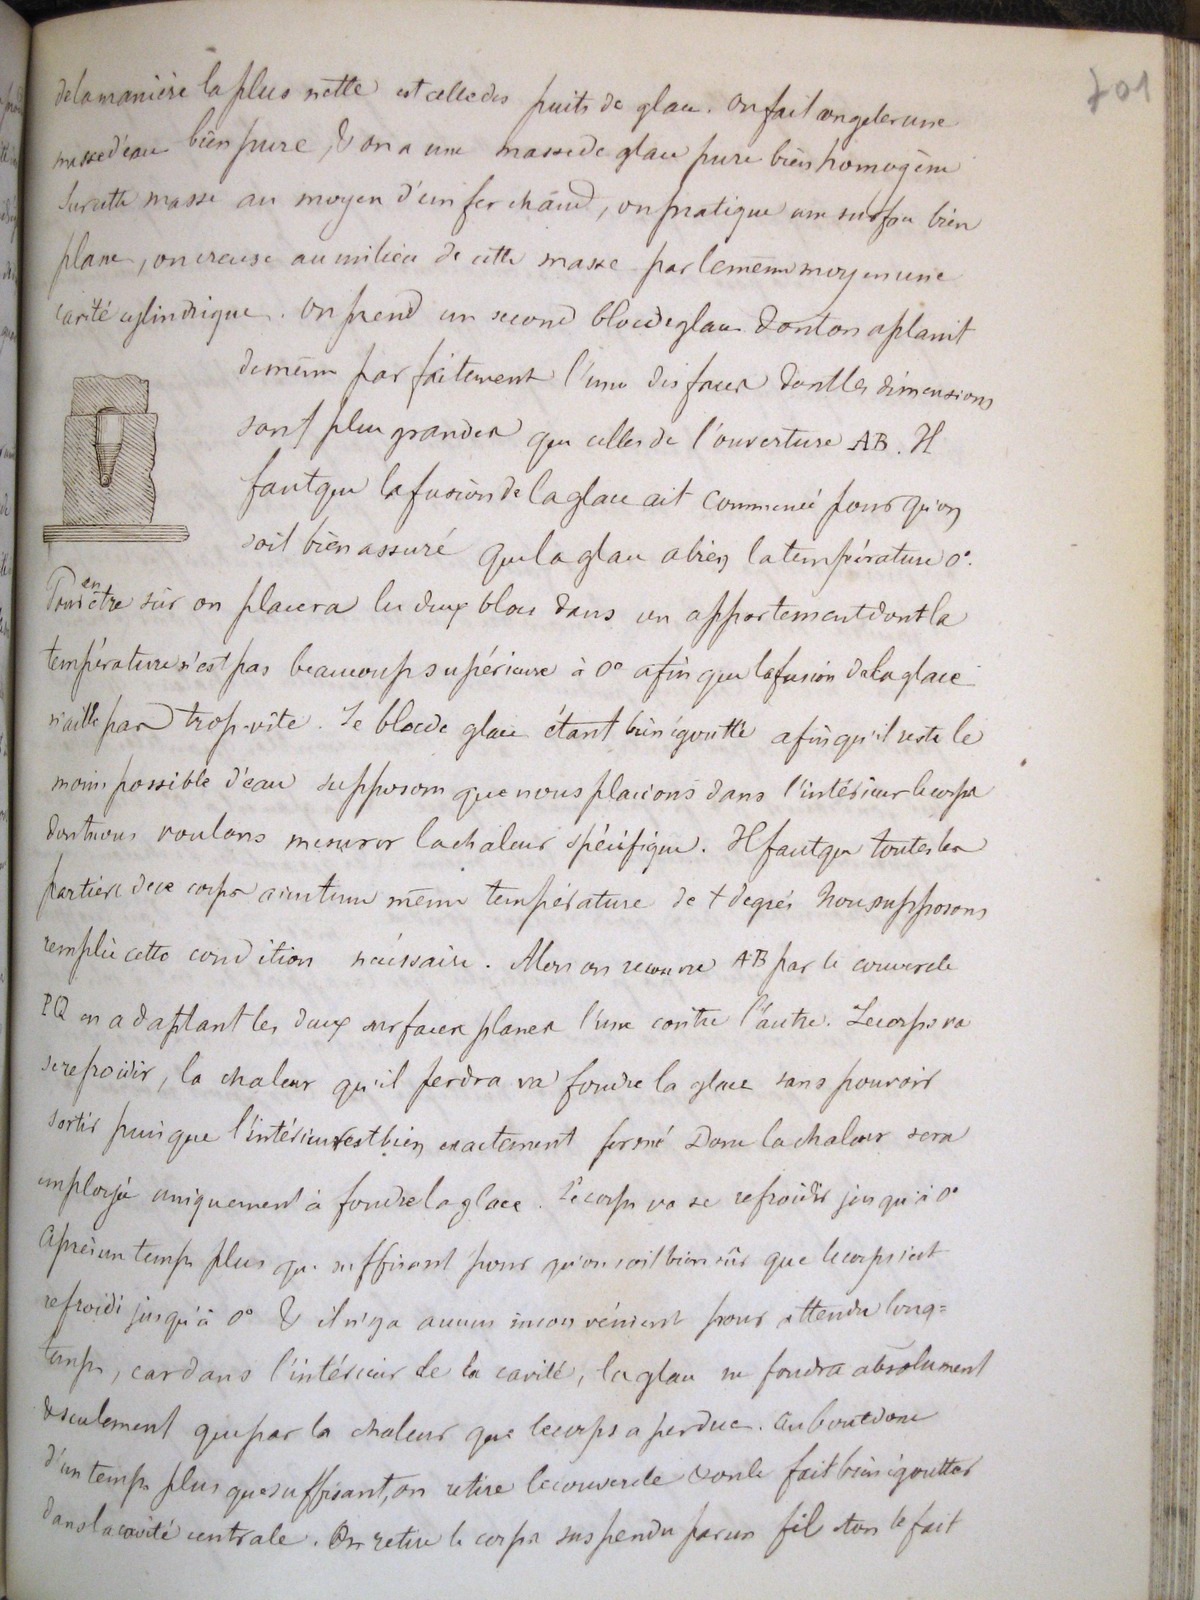 701
de la manière la plus nette est celle des puits de glace. On fait congeler une
masse d'eau bien pure, & on a une masse de glace pure bien homogène
Sur cette masse au moyen d'un fer chaud, on pratique une surface bien
plane, on creuse au milieu de cette masse par le même moyen une
cavité cylindrique. On prend un second bloc de glace dont on aplanit
de même parfaitement l'une des faces dont les dimensions
sont plus grandes que celles de l'ouverture AB. Il
faut que la fusion de la glace ait commencé pour qu'on
soit bien assuré que la glace a bien la température 0°.
Pour en être sûr on placera les deux blocs dans un appartement dont la
température n'est pas beaucoup supérieure à 0° afin que la fusion de la glace
n'aille pas trop vite. Le bloc de glace étant bien égoutté afin qu'il reste le
moins possible d'eau supposons que nous placions dans l'intérieur le corps
dont nous voulons mesurer la chaleur spécifique. Il faut que toutes les
parties de ce corps aient une même température de t degrés Nous supposons
remplie cette condition nécessaire. Alors on recouvre AB par le couvercle
PQ en adaptant les deux surfaces planes l'une contre l'autre. Le corps va
se refroidir, la chaleur qu'il perdra va fondre la glace sans pouvoir
sortir puisque l'intérieur est bien exactement fermé Donc la chaleur sera
employée uniquement à fondre la glace. Le corps va se refroidir jusqu'à 0°
Après un temps plus que suffisant pour qu'on soit bien sûr que le corps s'est
refroidi jusqu'à 0° & il n'y a aucun inconvénient pour attendre long=
temps, car dans l'intérieur de la cavité, la glace ne fondra absolument
& seulement que par la chaleur que le corps a perdue. Au bout donc
d'un temps plus que suffisant, on retire le couvercle & on le fait bien égoutter
dans la cavité centrale. On retire le corps suspendu par un fil & on le fait